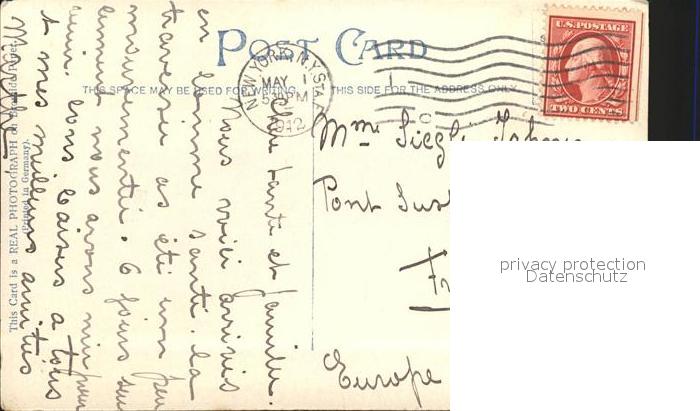 POST CARD
THIS SPACE MAY BE USED FOR WRITING.
THIS SIDE FOR THE ADDRESS ONLY.
NEW YORK, N.Y. STA.
MAY 1
PM
1912
U.S. POSTAGE
TWO CENTS
Mme Siegl
Pont Sus
Fr
Europe
privacy protection
Datenschutz
Chère tante et famille.
Nous voici arrivés
en bonne santé. la
traversée as été un peu
mouvementée. 6 jours
nous avons mis pour
bons baisers a tous
t mes milliers amitiés
This Card is a REAL PHOTOGRAPH on Bromide Paper.
(Printed in Germany).